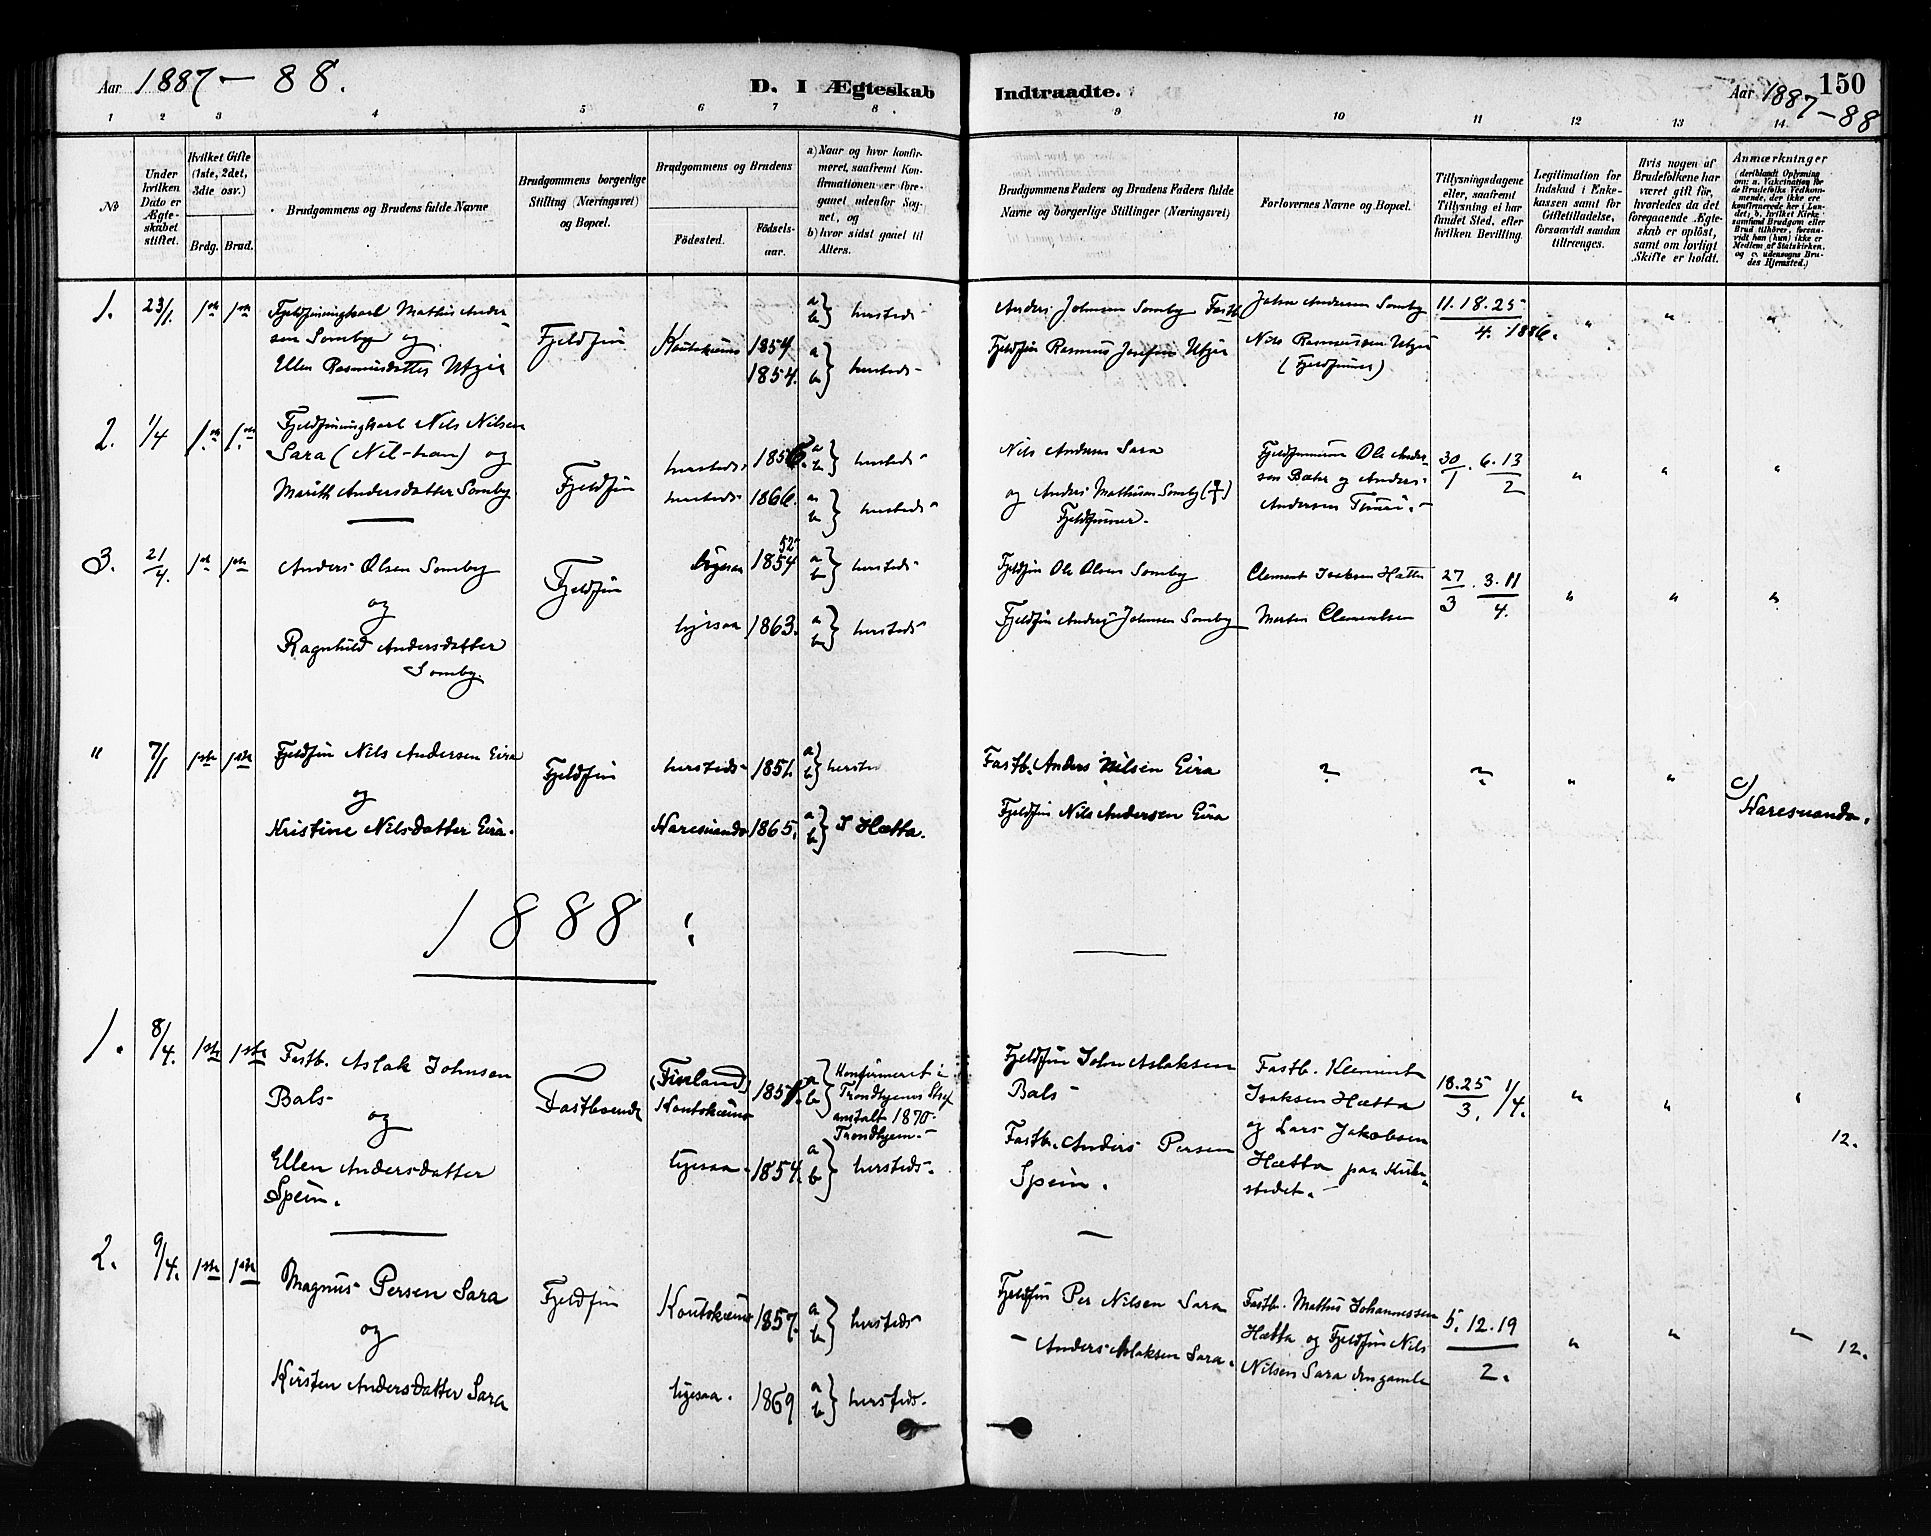 Aar 1887 — 88.
D. I Ægteskab Indtraadte.
150
Aar 1887 — 88
1 2 3 4 5 6 7 8 9 10 11 12 13 14.
No
Under hvilken Dato er Ægteskabet stiftet.
Hvilket Gifte (1ste, 2det, 3die osv.)
Brdg. Brud.
Brudgommens og Brudens fulde Navne
Brudgommens borgerlige Stilling (Næringsvei) og Bopæl.
Brudgommens og Brudens
Födested.
Födsels-aar.
a) Naar og hvor konfirmeret, saafremt Konfirmationen er foregaaet udenfor Sognet, og
b) hvor sidst gaaet til Alters.
Brudgommens Faders og Brudens Faders fulde Navne og borgerlige Stillinger (Næringsvei)
Forlovernes Navne og Bopæl.
Tillysningsdagene eller, saafremt Tillysning ei har fundet Sted, efter hvilken Bevilling.
Legitimation for Indskud i Enkekassen samt for Giftetilladelse, forsaavidt saadan tiltrænges.
Hvis nogen af Brudefolkene har været gift för, hvorledes da det foregaaende Ægteskab er oplöst, samt om lovligt Skifte er holdt.
Anmærkninger (deriblandt Oplysning om: a. Vakcination for de Brudefolks Vedkommende, der ikke ere konfirmerede her i Landet; b. hvilket Kirkesamfund Brudgom eller Brud tilhörer, forsaavidt han (hun) ikke er Medlem af Statskirken, og c. udensogns Brudes Hjemsted.)
1. 23/1. 1ste 1ste
Fjeldfinungkarl Mathis Andersen Somby og
Ellen Rasmusdatter Utzie
Fjeldfin Koutokeino 1854 1854.
a b } hersteds
a b } hersteds
Anders Johnsen Somby Fastb.
Fjeldfin Rasmus Josefsen Utzie
John Andersen Somby
Nils Rasmussen Utzie
(Fjeldfinner)
11. 18. 25 / 4. 1886.
" " "
2. 1/4 1ste 1ste
Fjeldfinungkarl Nils Nilsen
Sara (Nil-han) og
Marith Andersdatter Somby
Fjeldfin
hersteds 1856. a b } hersteds
hersteds 1866. a b } hersteds
Nils Andersen Sara
og Anders Mathisen Somby (†)
Fjeldfinner.
Fjeldfinnerne Ole Andersen Bæhr og Anders
Andersen
30/1. 6. 13/2
" " "
3. 21/4. 1ste 1ste
Anders Olsen Somby
og
Ragnhild Andersdatter
Somby.
Fjeldfin
ligesaa 1854 52 a b } hersteds
ligesaa 1863. a b } hersteds
Fjeldfin Ole Olsen Somby
Fjeldfin Anders Johnsen Somby
Clement Isaksen Hætta
Morten Clementsen
27/3. 3. 11/4.
" " "
" 7/1 1ste 1ste
Fjeldfin Nils Andersen Eira
og
Kristine Nilsdatter Eira.
Fjeldfin
hersteds 1851. a b } hersteds
Karesuando 1865. a b } I Hætta.
Fastb. Anders Nilsen Eira
Fjeldfin Nils Andersen Eira
? ? " "
c) Karesuando.
1888.
1. 8/4. 1ste 1ste
Fastb. Aslak Johnsen
Bals
og
Ellen Andersdatter
Spein.
Fastboende
(Finland)
Koutokeino 1851. a b } Konfirmeret i
Trondhjems
anstalt 1870
Trondhjem.
ligesaa 1854. a b } hersteds.
Fjeldfin John Aslaksen
Bals
Fastb. Anders Persen
Spein.
Fastb. Klement
Isaksen Hætta
og Lars Jakobsen
Hætta paa Kirkestedet.
18. 25/3. 1/4.
" " "
12.
2. 9/4. 1ste 1ste
Magnus Persen Sara
og
Kirsten Andersdatter Sara
Fjeldfin
Koutokeino 1857. a b } hersteds
ligesaa. 1869 a b } hersteds.
Fjeldfin Per Nilsen Sara
— Anders Aslaksen Sara.
Fastb. Mathis Johannessen
Hætta og Fjeldfin Nils
Nilsen Sara den gamle
5. 12. 19 / 2.
" " "
12.